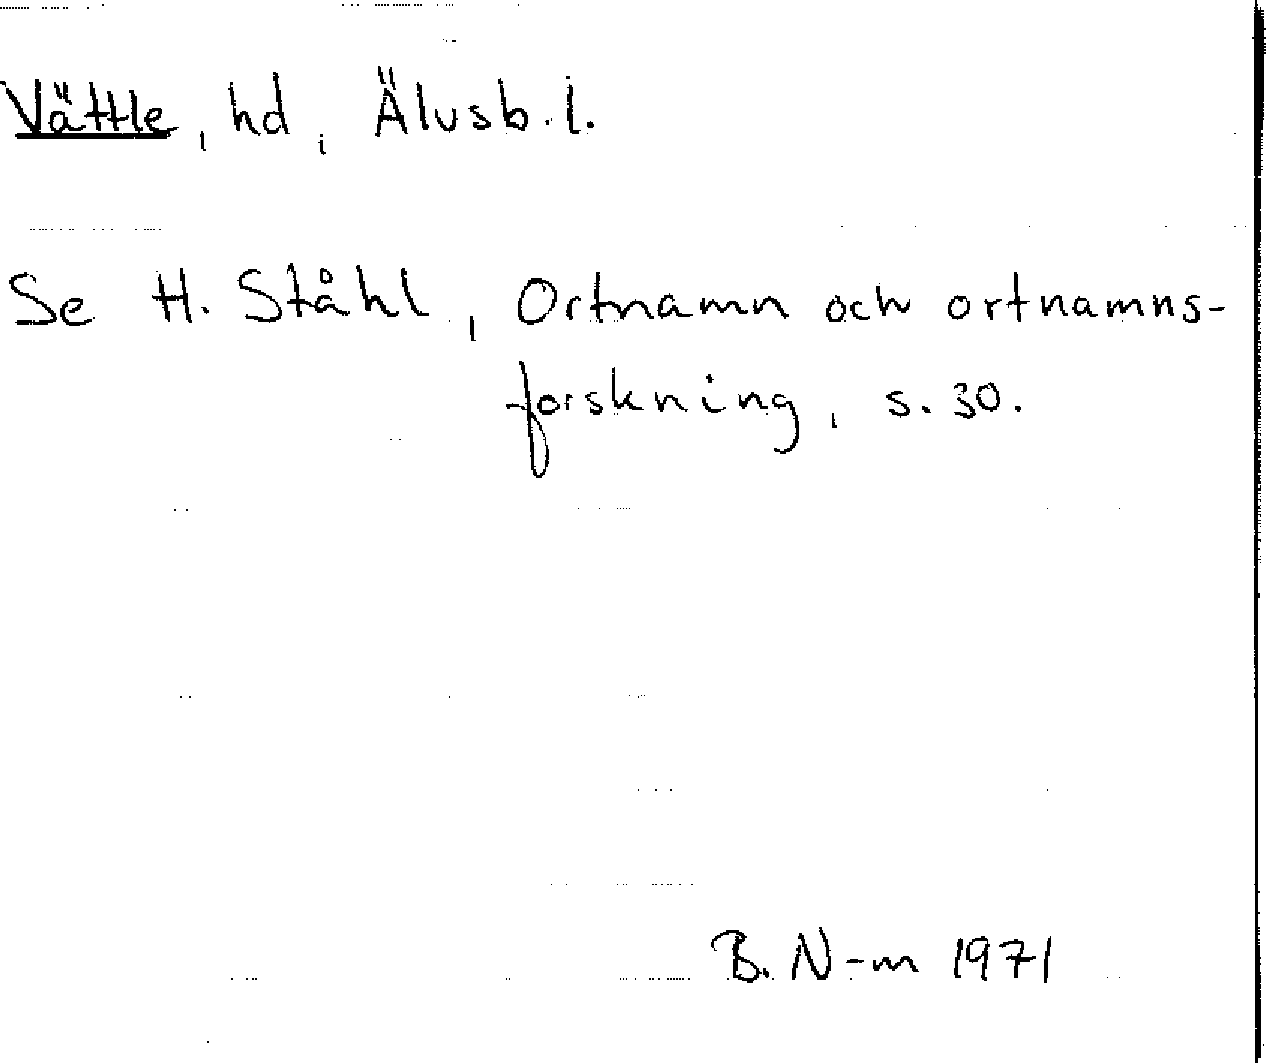 Vättle, hd, Älvsb. l.
Se H. Ståhl, Ortnamn och ortnamns-
forskning, s. 30.
B. N-m 1971